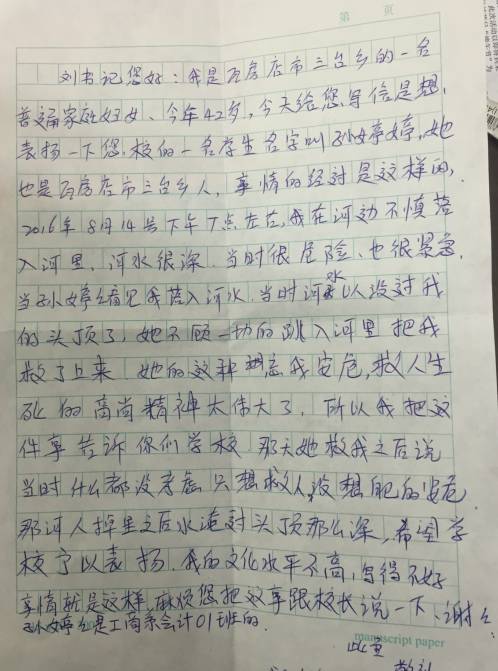 第 页
刘书记您好：我是瓦房店市三台乡的一名
普通家庭妇女、今年42岁，今天给您写信是想，
表扬一下您校的一名学生名字叫孙婷婷，她
也是瓦房店市三台乡人，事情的经过是这样的，
2016年8月14号下午1点左右，我在河边不慎落
入河里，河水很深，当时很危险、也很紧急，
当孙婷婷看见我落入河水，当时河水以没过我
的头顶了，她不顾一切的跳入河里把我
救了上来 她的这种忘我安危，救人生
死的高尚精神太伟大了，所以我把这
件事告诉你们学校 那天她救我之后说
当时什么都没考虑只想救人，没想自的安危
那河人掉里之后水淹过头顶那么深，希望学
校予以表扬，我的文化水平不高，写得不好
事情就是这样，麻烦您把这事跟校长说一下、谢谢
孙婷婷是工商系会计01班的.
manuscript paper
此至
敬礼